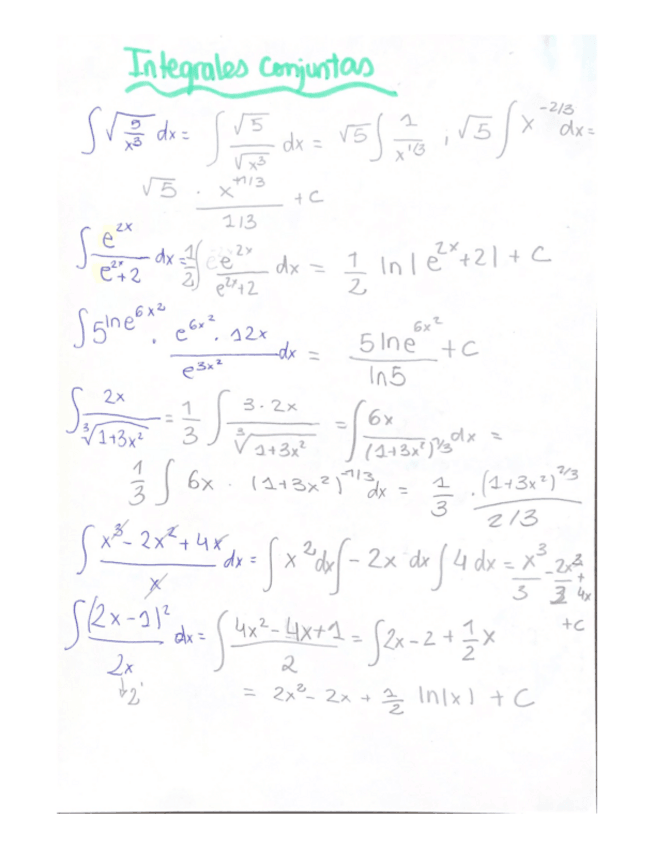 Integrales conjuntas
∫√(5/x³) dx = ∫ √5/√x³ dx = √5 ∫ 1/x^(1/3) , √5 ∫ x^(-2/3) dx =
√5 · x^(+1/3)/(1/3) + C
∫ e^(2x)/(e^(2x)+2) dx = 1/2 ∫ e^(2x)/(e^(2x)+2) dx = 1/2 ln|e^(2x)+2| + C
∫ 5^(ln e^(6x²)) · (e^(6x²) · 12x)/e^(3x²) dx = 5 ln e^(6x²)/ln5 + C
∫ 2x/∛(1+3x²) = 1/3 ∫ 3·2x/∛(1+3x²) = ∫ 6x/(1+3x²)^(1/3) dx =
1/3 ∫ 6x · (1+3x²)^(-1/3) dx = 1/3 · (1+3x²)^(2/3)/(2/3)
∫ (x³ - 2x² + 4x)/x dx = ∫ x² dx ∫ - 2x dx ∫ 4 dx = x³/3 - 2x²/2 + 4x
+C
∫ (2x-1)²/2x dx = ∫ (4x² - 4x + 1)/2 = ∫ 2x - 2 + 1/2 x
↓2
= 2x² - 2x + 1/2 ln|x| + C